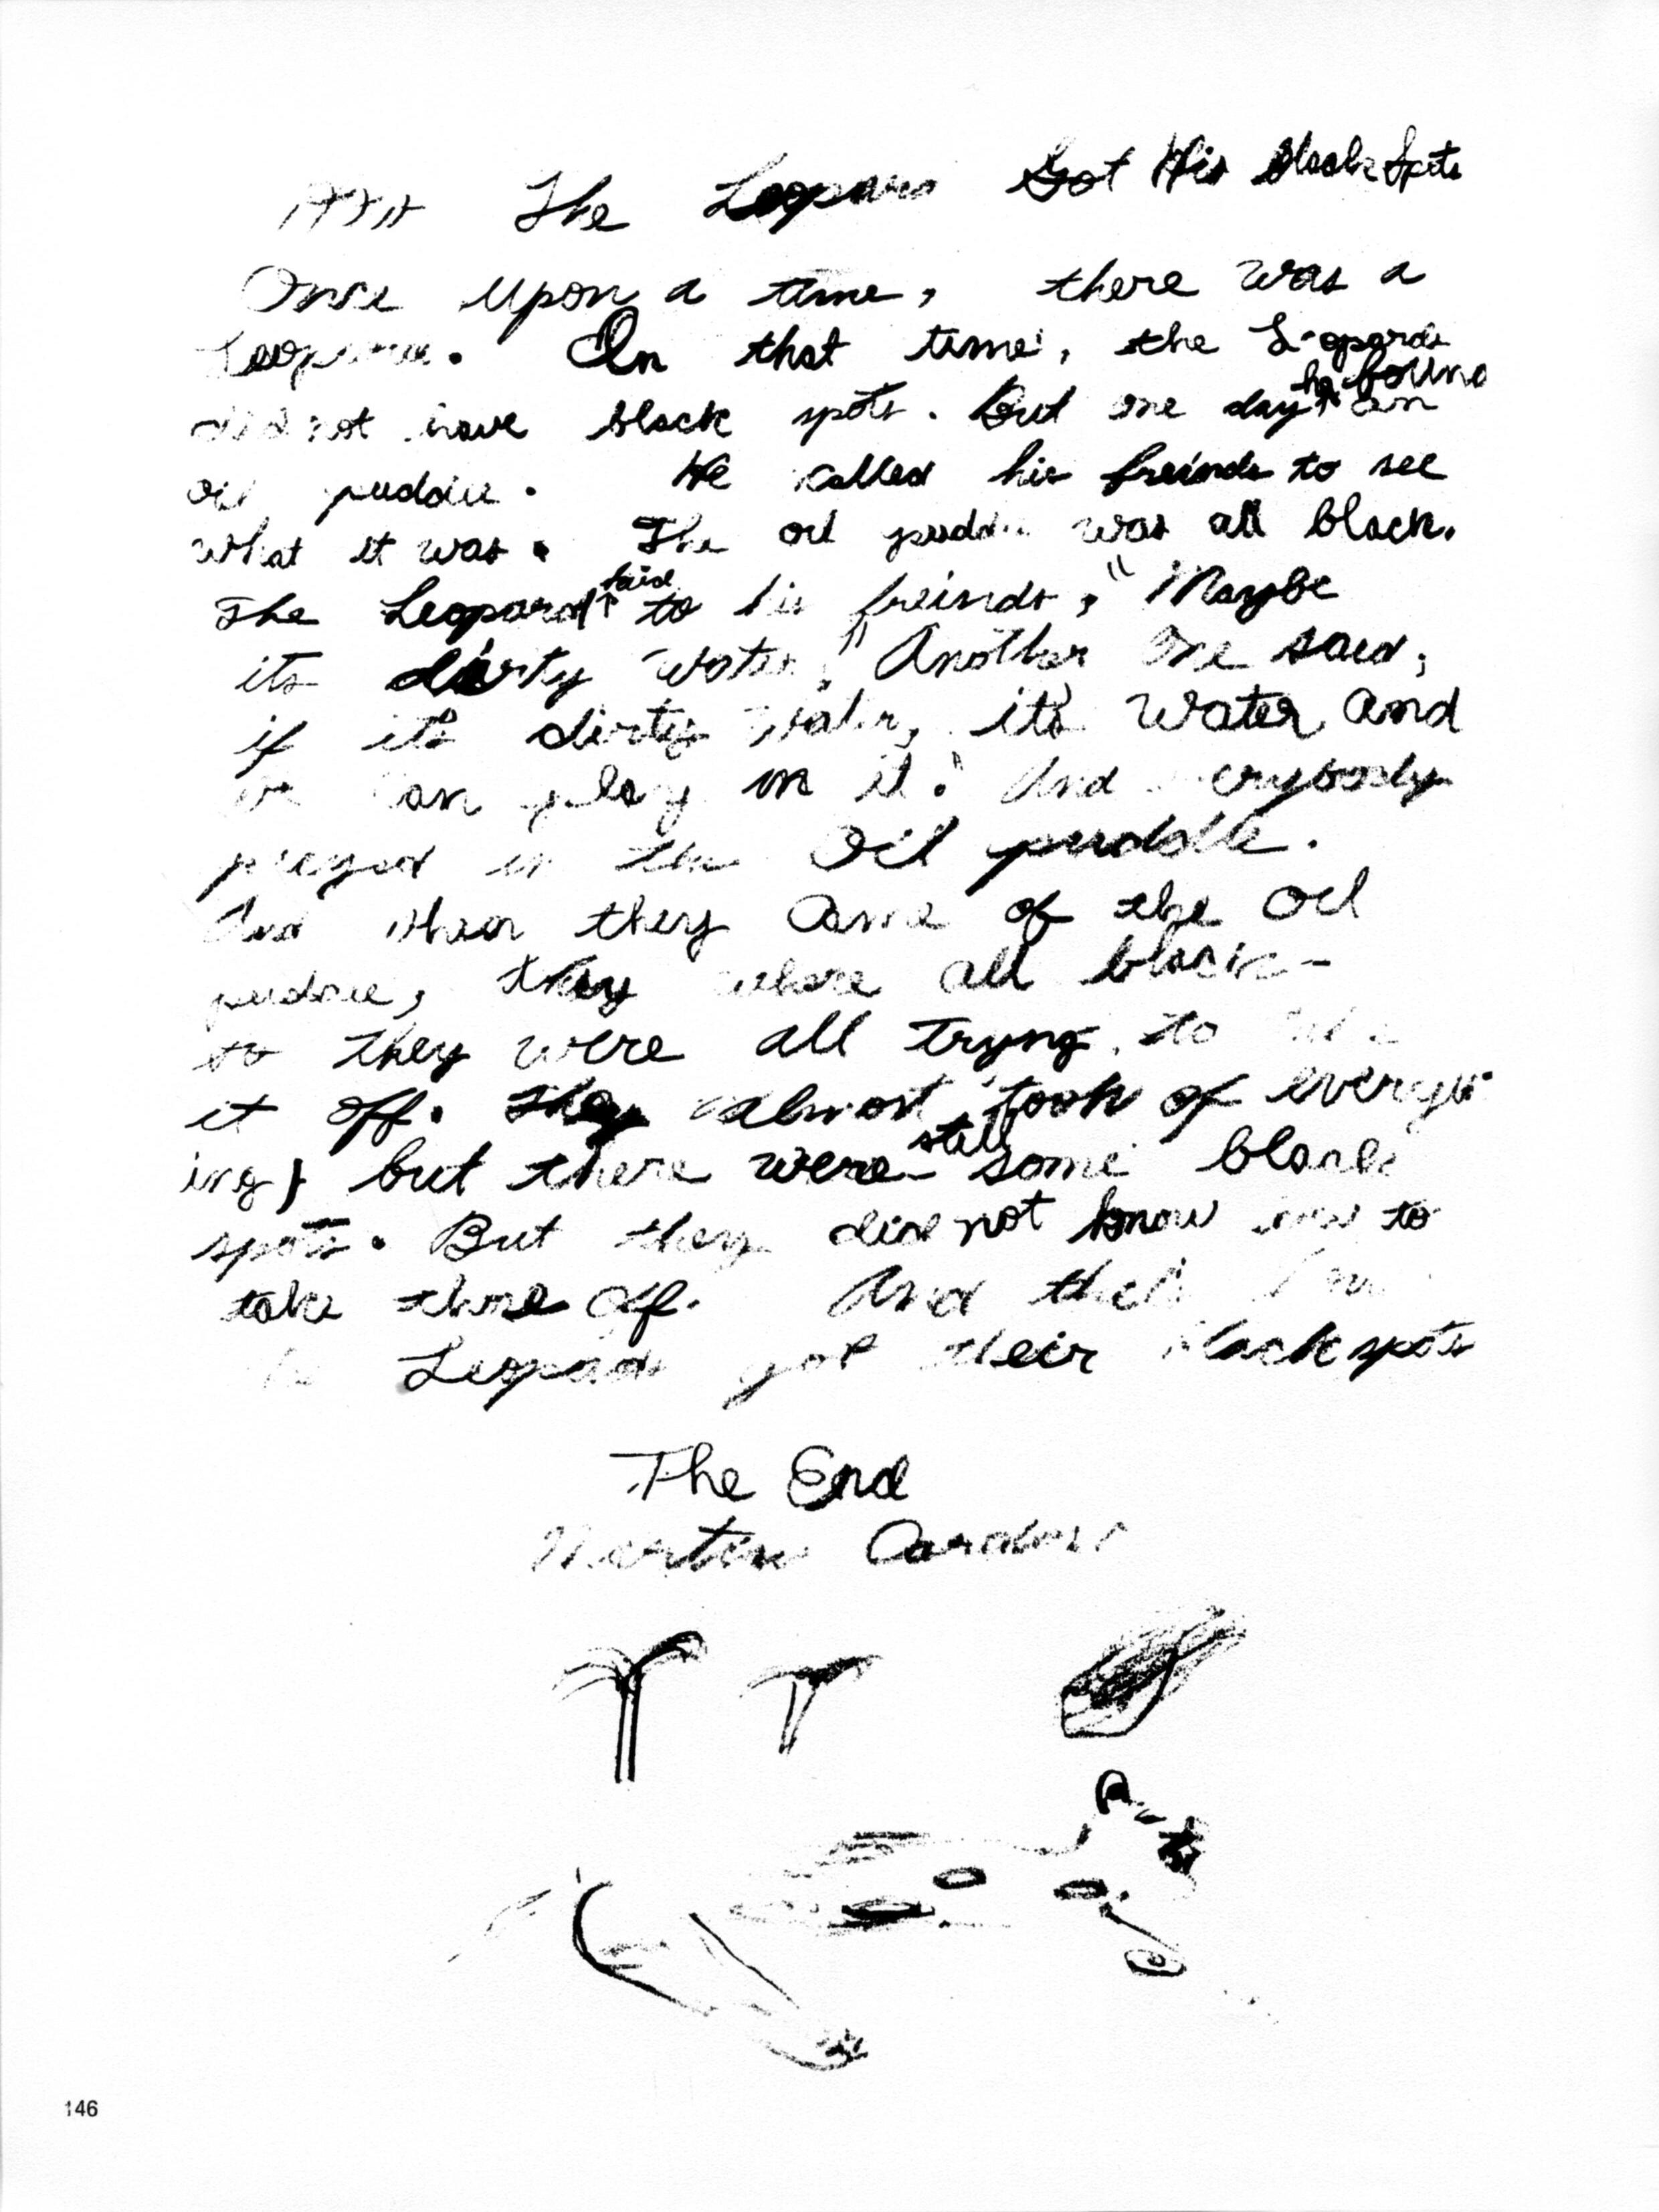 The Leopard Got His Black Spots
Once upon a time, there was a
Leopard. In that time, the Leopards
did not have black spots. But one day he found an
oil puddle. He called his freinds to see
what it was. The oil puddle was all black.
The Leopard said to his freinds, "Maybe
its dirty water." Another one said,
if its dirty water, its water and
we can play in it." And everybody
played in the oil puddle.
And when they came of the oil
puddle, they where all black-
so they were all tryng to
it off. They almost took of everyth
ing, but there were still some black
spots. But they did not know how to
take those off. And that
the Leopards got their black spots
The End
Martin
146